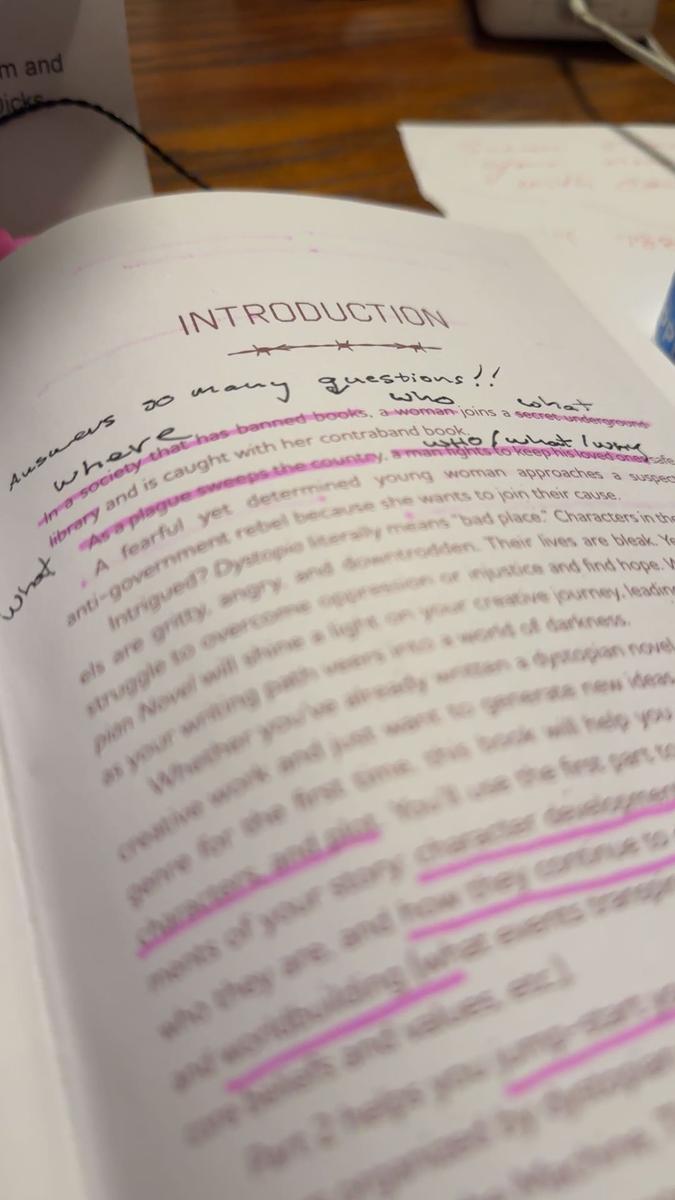 m and
INTRODUCTION
Answers so many questions!!
where who what
In a society that has banned books, a woman joins a secret underground
library and is caught with her contraband book.
who/what/why
As a plague sweeps the country, a man fights to keep his loved ones safe
what
A fearful yet determined young woman approaches a suspec
anti-government rebel because she wants to join their cause.
Intrigued? Dystopia literally means "bad place." Characters in the
els are gritty, angry, and downtrodden. Their lives are bleak. Ye
struggle to overcome oppression or injustice and find hope. W
pian Novel will shine a light on your creative journey, leadin
as your writing path veers into a world of darkness.
Whether you've already written a dystopian novel
creative work and just want to generate new ideas
genre for the first time, this book will help you
characters, and plot. You'll use the first part to
ments of your story: character development
who they are, and how they continue to
and worldbuilding (what events transpi
core beliefs and values, etc.).
Part 2 helps you jump-start
organized by dystopian
Machine.